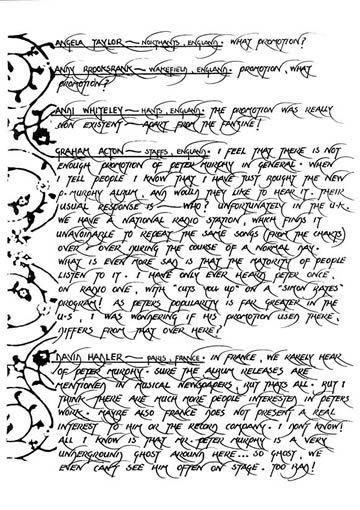 ANGELA TAYLOR - NORTHANTS, ENGLAND. WHAT PROMOTION?
ANDY BROOKSBANK - WAKEFIELD, ENGLAND. PROMOTION, WHAT
PROMOTION?
ANDI WHITELEY - HANTS, ENGLAND. THE PROMOTION WAS REALLY
NON EXISTENT - APART FROM THE FANZINE!
GRAHAM ACTON - STAFFS, ENGLAND. I FEEL THAT THERE IS NOT
ENOUGH PROMOTION OF PETER MURPHY IN GENERAL. WHEN
I TELL PEOPLE I KNOW THAT I HAVE JUST BOUGHT THE NEW
P. MURPHY ALBUM, AND WOULD THEY LIKE TO HEAR IT. THEIR
USUAL RESPONSE IS - WHO? UNFORTUNATELY IN THE U.K.
WE HAVE A NATIONAL RADIO STATION, WHICH FINDS IT
UNAVOIDABLE TO REPEAT THE SAME SONGS (FROM THE CHARTS)
OVER + OVER DURING THE COURSE OF A NORMAL DAY.
WHAT IS EVEN MORE SAD IS THAT THE MAJORITY OF PEOPLE
LISTEN TO IT. I HAVE ONLY EVER HEARD PETER ONCE,
ON RADIO ONE, WITH "CUTS YOU UP" ON A "SIMON BATES"
PROGRAM! AS PETERS POPULARITY IS FAR GREATER IN THE
U.S, I WAS WONDERING IF HIS PROMOTION USED THERE,
DIFFERS FROM THAT OVER HERE?
DAVID HADLER - PARIS, FRANCE. IN FRANCE, WE RARELY HEAR
OF PETER MURPHY. SURE THE ALBUM RELEASES ARE
MENTIONED IN MUSICAL NEWSPAPERS, BUT THATS ALL. BUT I
THINK THERE ARE MUCH MORE PEOPLE INTERESTED IN PETERS
WORK. MAYBE ALSO FRANCE DOES NOT PRESENT A REAL
INTEREST TO HIM OR THE RECORD COMPANY. I DONT KNOW!
ALL I KNOW IS THAT MR. PETER MURPHY IS A VERY
UNDERGROUND GHOST AROUND HERE... SO GHOST, WE
EVEN CAN'T SEE HIM OFTEN ON STAGE. TOO BAD!